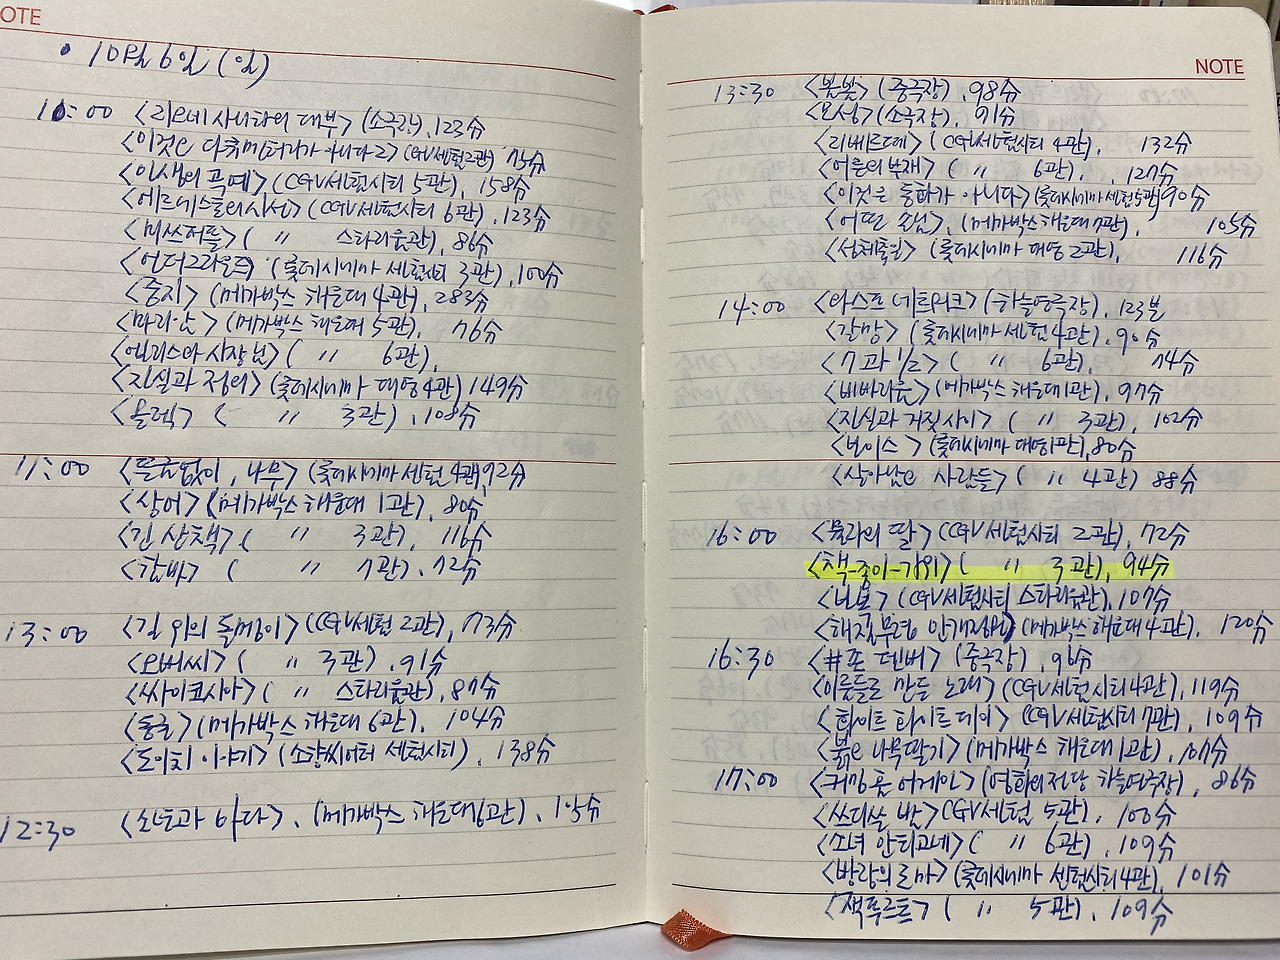 OTE
• 10월 6일 (일)
10:00 <리오네 사나이의 대부> (소극장), 123分
<이것은 다큐멘터리가 아니다2> (CGV센텀2관) 75分
<인생의 곡예> (CGV센텀시티 5관), 158分
<에르네스툴의 시선> (CGV센텀시티 6관), 123分
<미쓰퍼플> ( 〃 스타리움관), 86分
<언더그라운드> (롯데시네마 센텀시티 3관), 100分
<중지> (메가박스 해운대 4관), 283分
<마리안> (메가박스 해운대 5관), 76分
<앨리스와 시장님> ( 〃 6관),
<진실과 정의> (롯데시네마 대영4관) 149分
<올렉> ( 〃 3관), 108分
11:00 <뜻금없이, 나무> (롯데시네마 센텀 4관), 92分
<상어> (메가박스 해운대 1관), 80分
<긴 산책> ( 〃 3관), 116分
<캄바> ( 〃 7관), 72分
13:00 <길 위의 돌멩이> (CGV센텀 2관), 73分
<오버씨> ( 〃 3관), 91分
<싸이코시아> ( 〃 스타리움관), 87分
<동굴> (메가박스 해운대 6관), 104分
<도이치 이야기> (소향씨어터 센텀시티), 138分
12:30 <소년과 바다>, (메가박스 해운대6관), 105分
NOTE
13:30 <봄봄> (중극장), 98分
<모성> (소극장), 91分
<리베르떼> (CGV센텀시티 4관), 132分
<어른의 부재> ( 〃 6관), 127分
<이것은 동화가 아니다> (롯데시네마 센텀5관) 90分
<어떤 손님>, (메가박스 해운대 7관), 105分
<성체축일> (롯데시네마 대영 2관), 116分
14:00 <와스프 네트워크> (하늘연극장), 123분
<갈망> (롯데시네마 센텀 4관), 90分
<7과 1/2> ( 〃 6관), 74分
<비바리움> (메가박스 해운대1관), 97分
<진실과 거짓 사이> ( 〃 3관), 102分
<보이스> (롯데시네마 대영1관), 80分
<살아남은 사람들> ( 〃 4관) 88分
16:00 <물라의 딸> (CGV센텀시티 2관), 72分
<책-종이-가위> ( 〃 3관), 94分
<나봇> (CGV센텀시티 스타리움관), 107分
<해질무렵 안개정원> (메가박스 해운대4관), 120分
16:30 <#존 덴버> (중극장), 96分
<이름들로 만든 노래> (CGV센텀시티4관), 119分
<화이트 화이트 데이> (CGV센텀시티 7관), 109分
<붉은 나무딸기> (메가박스 해운대 1관), 107分
17:00 <커밍 홈 어게인> (영화의전당 하늘연극장), 86分
<쓰디쓴 밤> CGV센텀 5관), 100分
<소녀 안티고네> ( 〃 6관), 109分
<방랑의 로마> (롯데시네마 센텀시티4관), 101分
<잭푸르트> ( 〃 5관), 109分